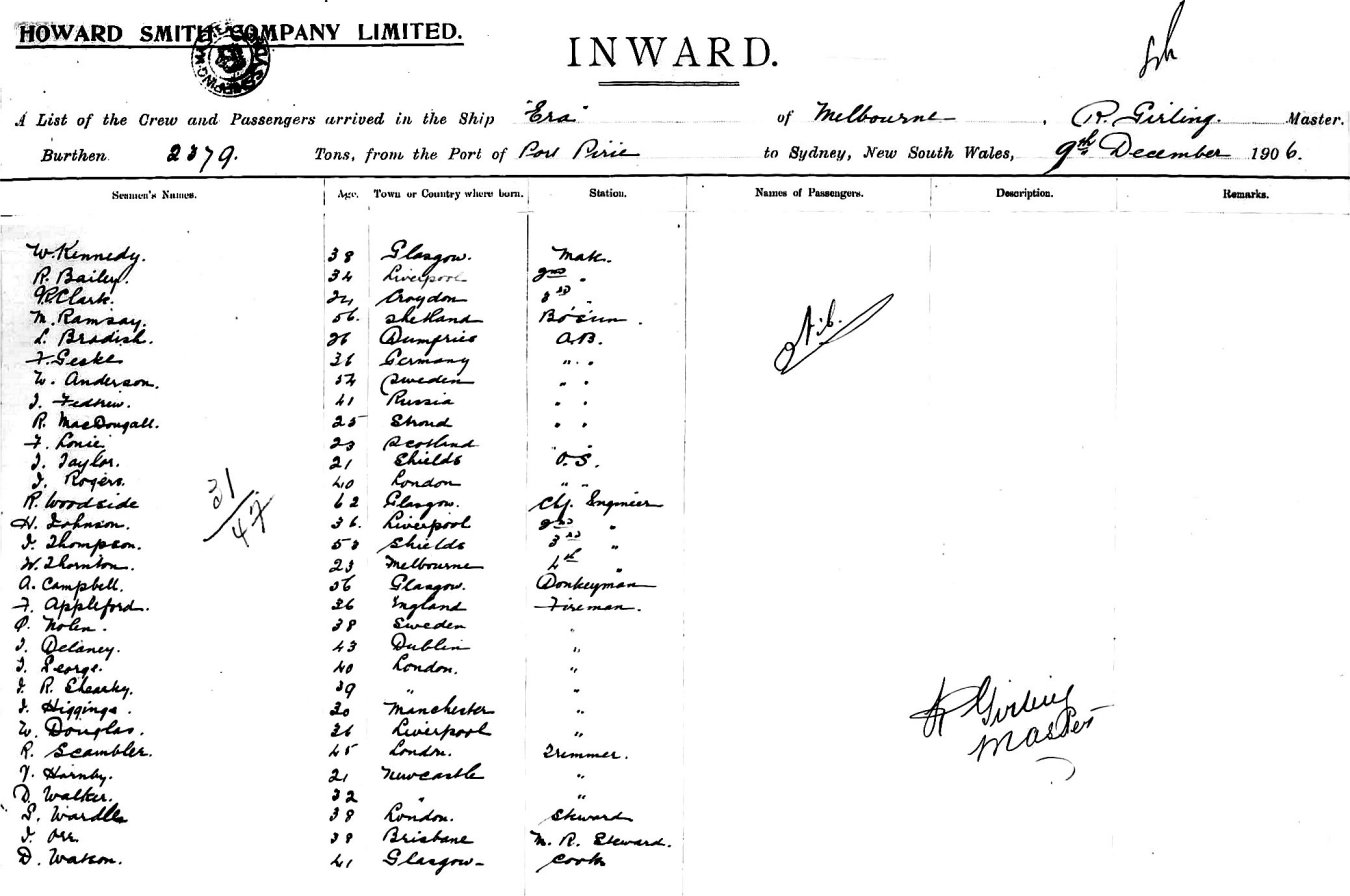 HOWARD SMITH COMPANY LIMITED.
INWARD.
A List of the Crew and Passengers arrived in the Ship "Era" of Melbourne, R. Girling. Master.
Burthen 2379. Tons, from the Port of Port Pirie to Sydney, New South Wales, 9th December 1906.
Seamen's Names. Age. Town or Country where born. Station. Names of Passengers. Description. Remarks.
W. Kennedy. 38 Glasgow. Mate.
R. Bailey. 34 Liverpool 2nd "
Clark. 24 Croydon 3rd "
M. Ramsay. 56. Shetland Bo'sun.
L. Bradish. 26 Dumfries A.B.
F. Geske 36 Germany " "
W. Anderson. 54 Sweden " "
41 Russia " "
R. MacDougall. 25 Stroud " "
F. Lonie. 23 Scotland " "
J. Taylor. 21 Shields O.S.
J. Rogers. 40 London " "
R. Woodside 62 Glasgow. Chf. Engineer
H. Johnson. 36. Liverpool 2nd "
J. Thompson. 53 Shields 3rd "
W. Thornton. 23 Melbourne 4th "
A. Campbell. 56 Glasgow. Donkeyman
F. Appleford. 36 England Fireman.
Nolen. 38 Sweden "
J. Delaney. 43 Dublin "
J. George. 40 London. "
J. R. 39 " "
J. Higgings. 30 Manchester "
W. Douglas. 36 Liverpool "
R. Scambler. 45 London. Trimmer.
Hornby. 21 Newcastle "
D. Walker. 32 " "
S. Wardle 38 London. Steward
J. Orr. 38 Brisbane M. R. Steward.
D. Watson. 41 Glasgow Cook
31/47
R Girling
Master